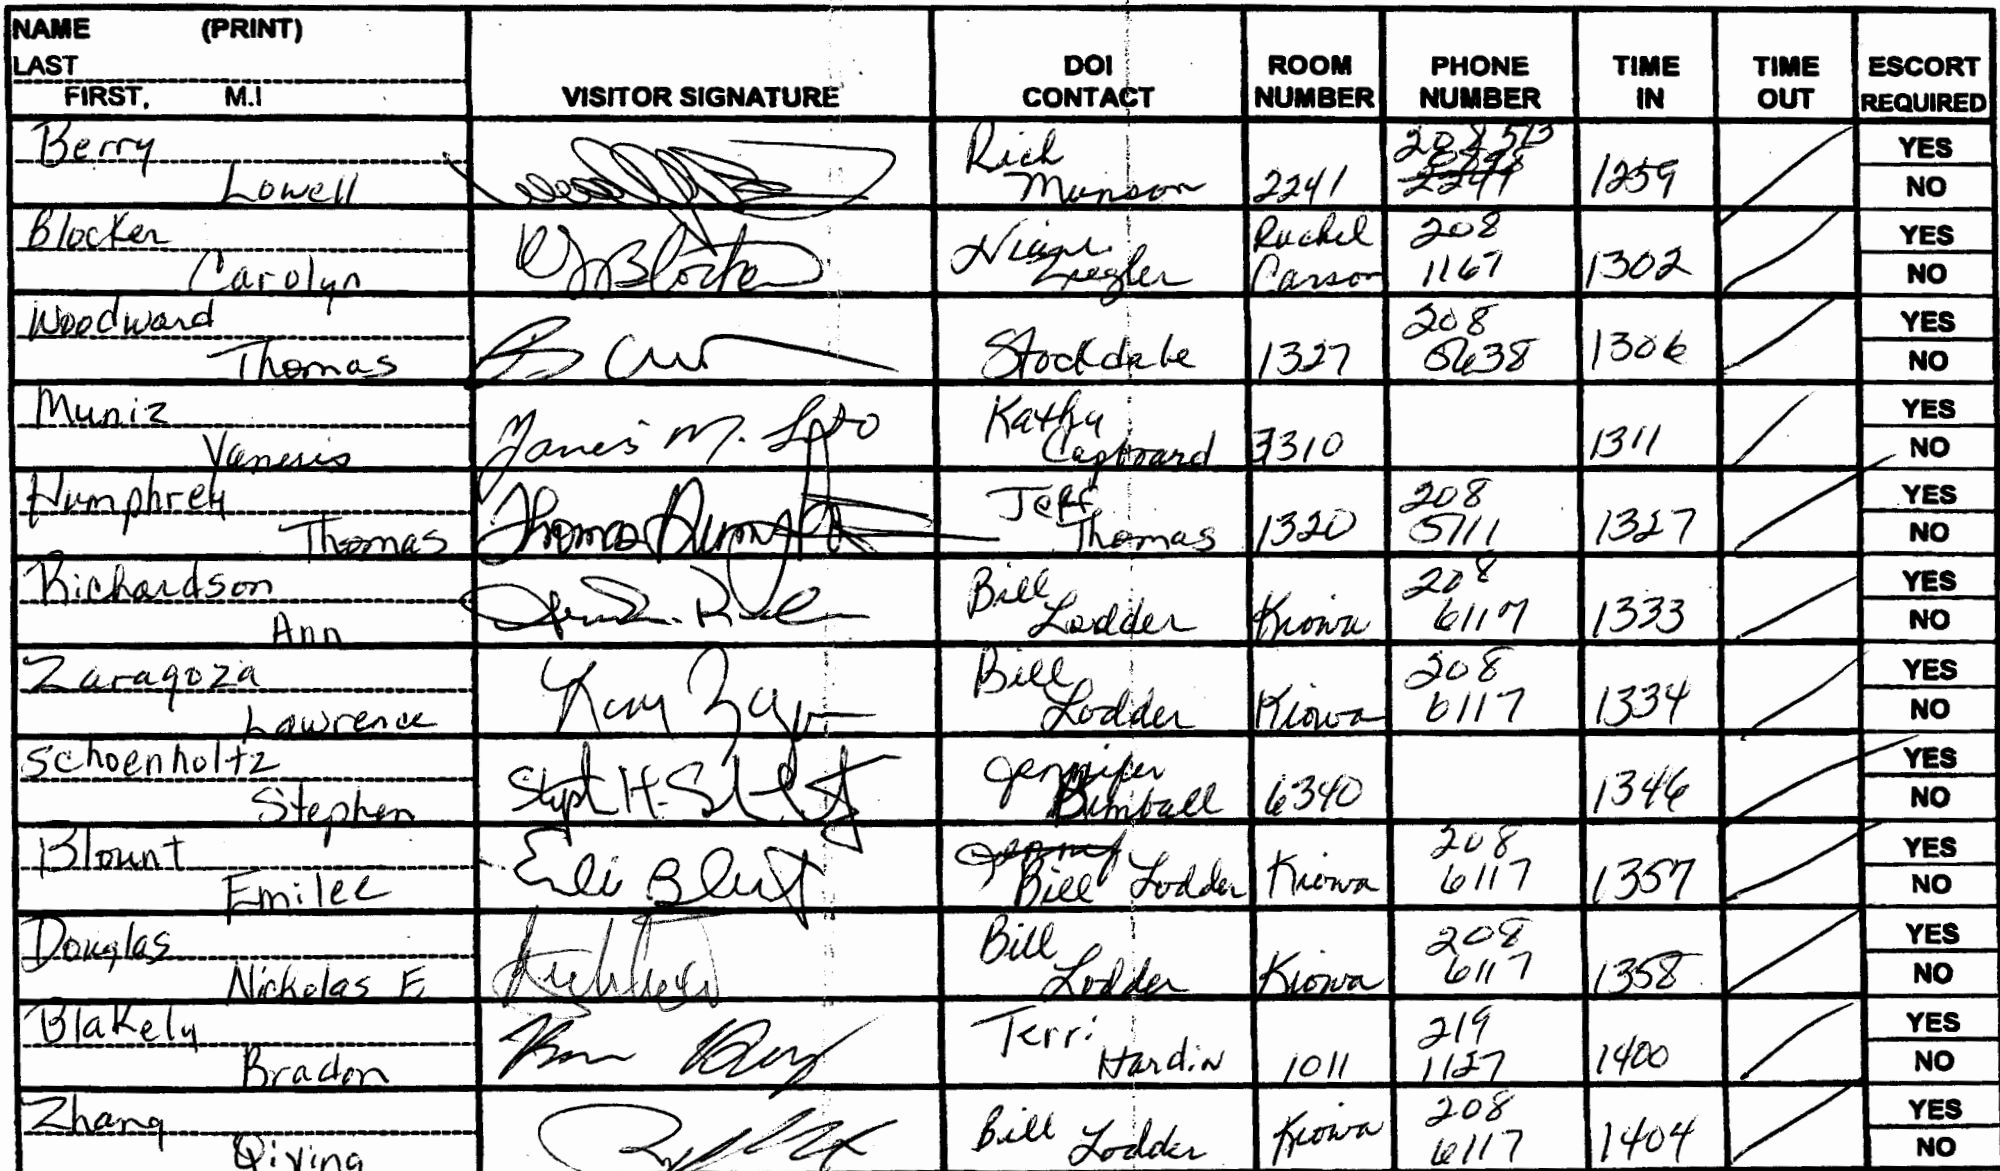 NAME (PRINT)
LAST
FIRST, M.I
VISITOR SIGNATURE
DOI
CONTACT
ROOM
NUMBER
PHONE
NUMBER
TIME
IN
TIME
OUT
ESCORT
REQUIRED
Berry
Lowell
Rich
Munson
2241
208 513
1259
YES
NO
Blocker
Carolyn
Blocker
Ziegler
Rachel
Carson
208
1167
1302
YES
NO
Woodward
Thomas
Stockdale
1327
208
5638
1306
YES
NO
Muniz
Yanesis
M.
Kathy
3310
1311
YES
NO
Humphrey
Thomas
Thomas
Jeff
Thomas
1320
208
5711
1327
YES
NO
Richardson
Ann
Bill
Lodder
Kiowa
208
6117
1333
YES
NO
Zaragoza
Lawrence
Bill
Lodder
Kiowa
208
6117
1334
YES
NO
Schoenholtz
Stephen
Jennifer
6340
1346
YES
NO
Blount
Emilee
Bill Lodder
Kiowa
208
6117
1357
YES
NO
Douglas
Nickolas E
Bill
Lodder
Kiowa
208
6117
1358
YES
NO
Blakely
Bradon
Terri
Hardin
1011
219
1127
1400
YES
NO
Zhang
Qiying
Bill Lodder
Kiowa
208
6117
1404
YES
NO